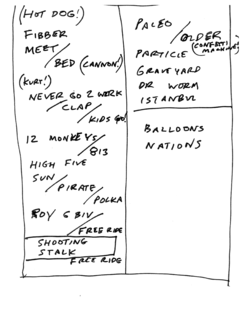 (HOT DOG!)
FIBBER
MEET/
BED (CANNON!)
(KURT!)
NEVER GO 2 WORK
CLAP/
KIDS GO!
12 MONKEYS/
813
HIGH FIVE
SUN/
PIRATE/
POLKA
ROY G BIV/
FREE RIDE
SHOOTING
STALK
FREE RIDE
PALEO/
OLDER
(CONFETTI MACHINE!)
PARTICLE
GRAVEYARD
DR WORM
ISTANBUL
BALLOONS
NATIONS